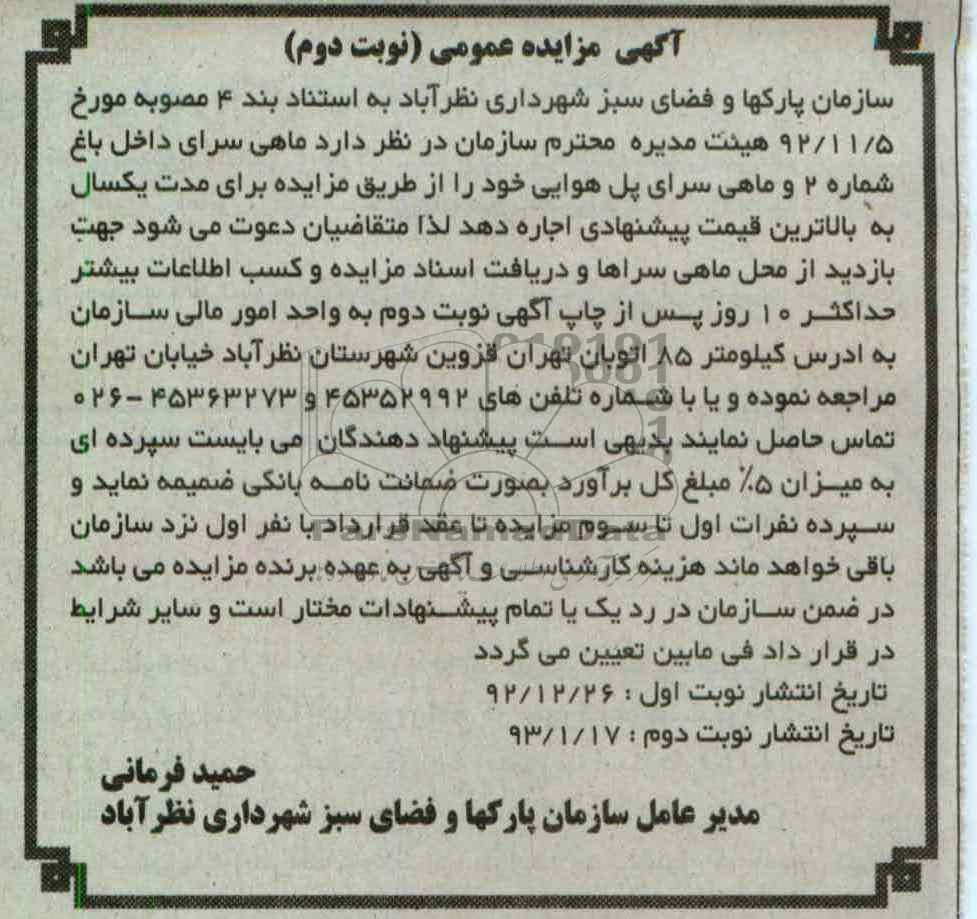 آگهی مزایده عمومی (نوبت دوم)
سازمان پارکها و فضای سبز شهرداری نظرآباد به استناد بند ۴ مصوبه مورخ
۹۲/۱۱/۵ هیئت مدیره محترم سازمان در نظر دارد ماهی سرای داخل باغ
شماره ۲ و ماهی سرای پل هوایی خود را از طریق مزایده برای مدت یکسال
به بالاترین قیمت پیشنهادی اجاره دهد لذا متقاضیان دعوت می شود جهت
بازدید از محل ماهی سراها و دریافت اسناد مزایده و کسب اطلاعات بیشتر
حداکثر ۱۰ روز پس از چاپ آگهی نوبت دوم به واحد امور مالی سازمان
به ادرس کیلومتر ۸۵ اتوبان تهران قزوین شهرستان نظرآباد خیابان تهران
مراجعه نموده و یا با شماره تلفن های ۴۵۳۵۲۹۹۲ و ۴۵۳۶۳۲۷۳-۰۲۶
تماس حاصل نمایند بدیهی است پیشنهاد دهندگان می بایست سپرده ای
به میزان ۵٪ مبلغ کل برآورد بصورت ضمانت نامه بانکی ضمیمه نماید و
سپرده نفرات اول تا سوم مزایده تا عقد قرارداد با نفر اول نزد سازمان
باقی خواهد ماند هزینه کارشناسی و آگهی به عهده برنده مزایده می باشد
در ضمن سازمان در رد یک یا تمام پیشنهادات مختار است و سایر شرایط
در قرار داد فی مابین تعیین می گردد
تاریخ انتشار نوبت اول : ۹۲/۱۲/۲۶
تاریخ انتشار نوبت دوم : ۹۳/۱/۱۷
حمید فرمانی
مدیر عامل سازمان پارکها و فضای سبز شهرداری نظرآباد
ParsNamadData